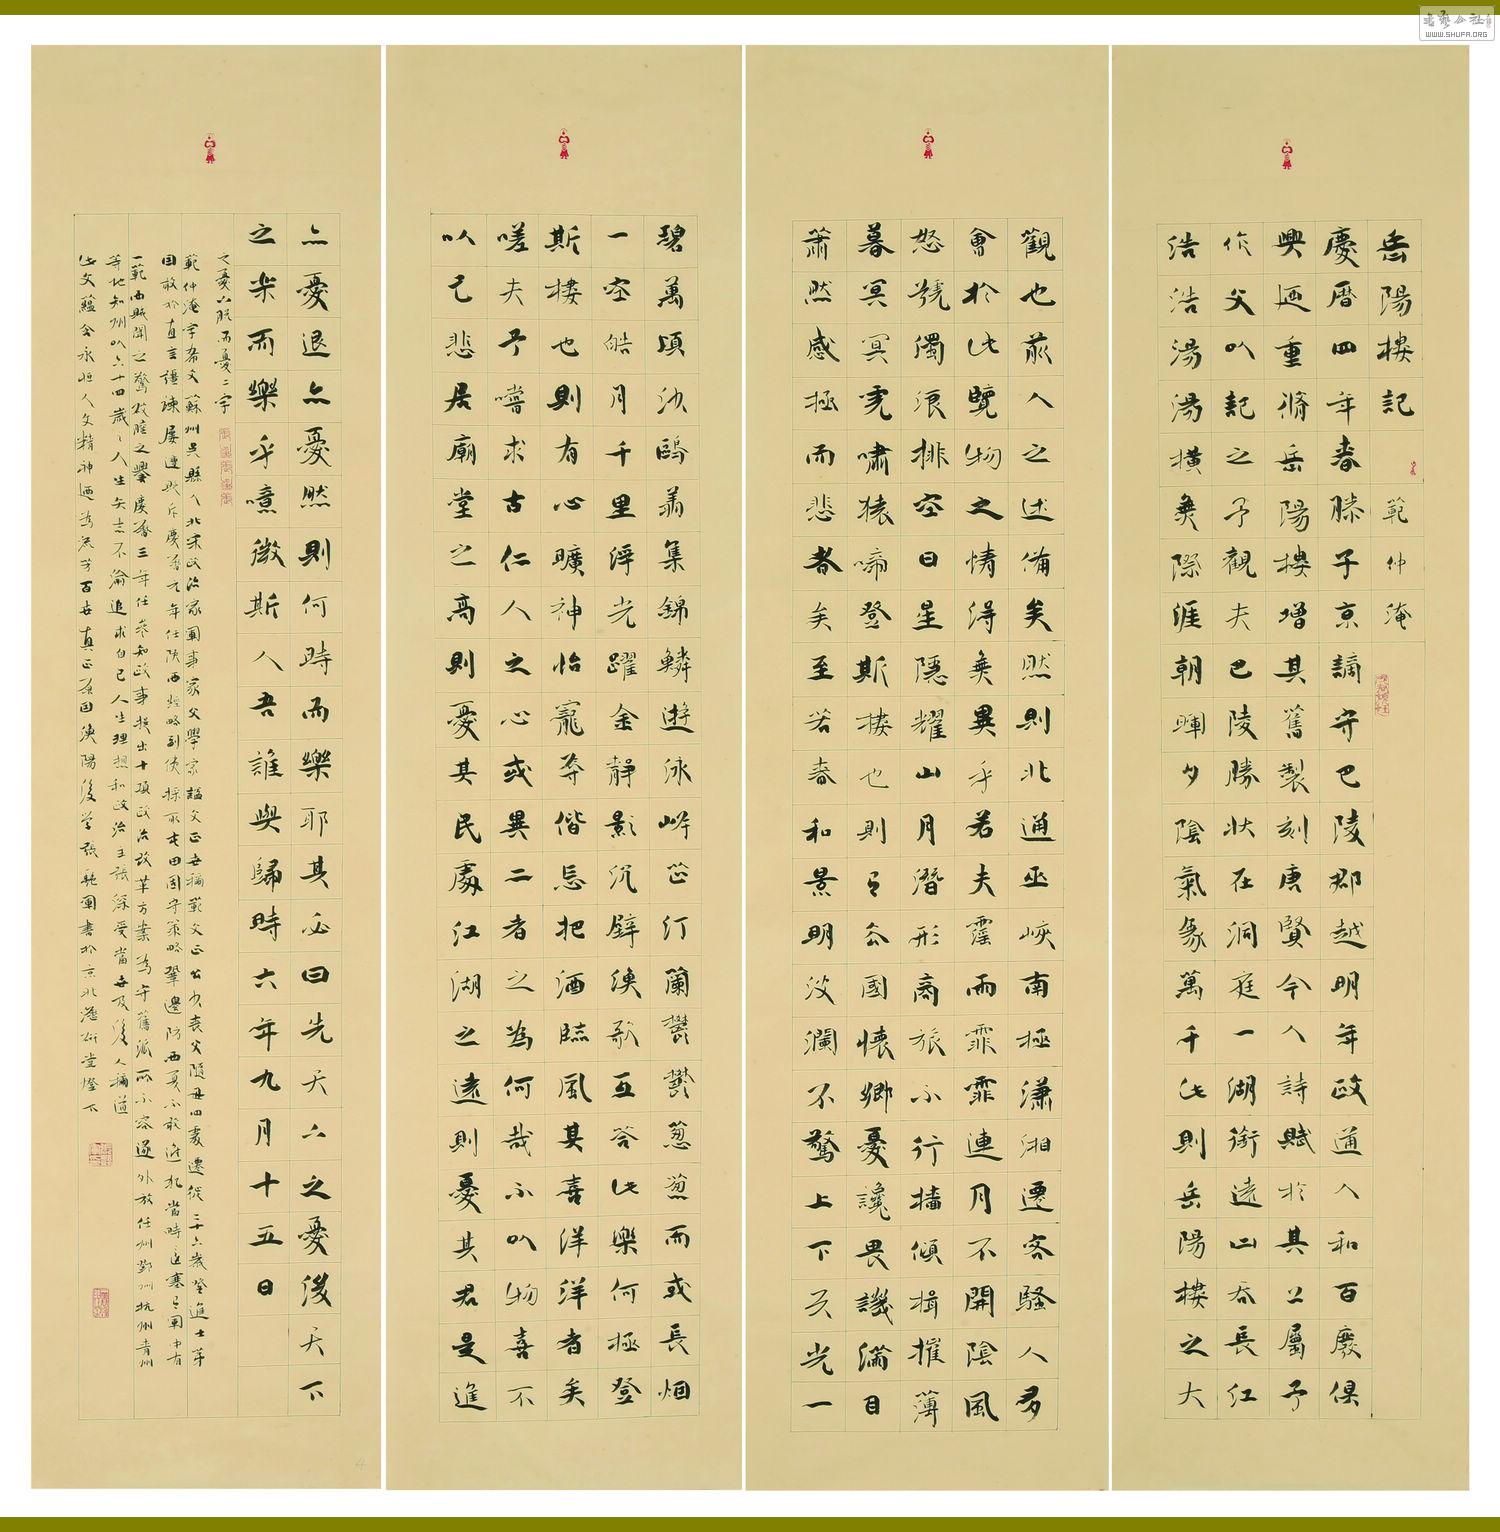 岳陽樓記 範仲淹
慶曆四年春滕子京謫守巴陵郡越明年政通人和百廢俱
興廼重脩岳陽樓增其舊製刻唐賢今人詩賦於其上屬予
作文以記之予觀夫巴陵勝狀在洞庭一湖銜遠山吞長江
浩浩湯湯橫無際涯朝暉夕陰氣象萬千此則岳陽樓之大
觀也前人之述備矣然則北通巫峽南極瀟湘遷客騷人多
會於此覽物之情得無異乎若夫霪雨霏霏連月不開陰風
怒號濁浪排空日星隱耀山月潛形商旅不行檣傾楫摧薄
暮冥冥虎嘯猿啼登斯樓也則有去國懷鄉憂讒畏譏滿目
蕭然感極而悲者矣至若春和景明波瀾不驚上下天光一
碧萬頃沙鷗翔集錦鱗遊泳岸芷汀蘭鬱鬱葱葱而或長烟
一空皓月千里浮光躍金靜影沉璧漁歌互答此樂何極登
斯樓也則有心曠神怡寵辱偕忘把酒臨風其喜洋洋者矣
嗟夫予嘗求古仁人之心或異二者之為何哉不以物喜不
以己悲居廟堂之高則憂其民處江湖之遠則憂其君是進
亦憂退亦憂然則何時而樂耶其必曰先天下之憂後天下
之樂而樂乎噫微斯人吾誰與歸時六年九月十五日
之憂下脫而憂二字
範仲淹字希文蘇州吳縣人北宋政治家軍事家文學家謚文正世稱範文正公少喪父隨母四處遷徙二十六歲登進士第
因敢於直言諫屢遭貶斥慶曆元年任陝西經略副使採取屯田固守策略鞏邊防西夏不敢進犯當時邊塞有軍中有
一範西賊聞之驚破膽之譽慶曆三年任參知政事提出十項政治改革方案為守舊派所不容遂外放任州鄧州杭州青州
等地知州以六十四歲人生矢志不渝追求自己人生理想和政治主張深受當世及後人稱道
此文蘊含永恒人文精神廼為流芳百世真正原因漁陽後學張軍書於京北堂燈下
书艺公社
WWW.SHUFA.ORG